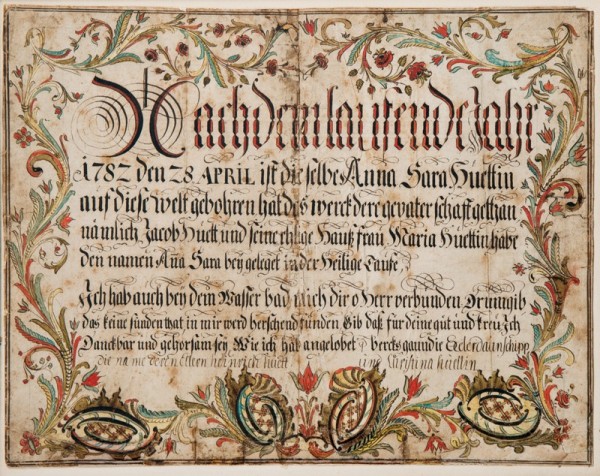 Nach dem laufende Jahr
1782 den 28 APRIL ist dieselbe Anna Sara Huettin
auf diese welt gebohren hat das werck dere gevater schaft gethan
nämlich Jacob Huett und seine ehlige Hauß frau Maria Huettin habe
den namen Ana Sara bey geleget in der Heilige Taufe
Ich hab auch bey dem Wasser bad mich dir o Herr verbunden Drum gib
das keine sünden that in mir werd herschend funden Gib daß für deine güt und treu Ich
Danckbar und gehorsam sey Wie ich hab angelobet bercks gaundie
die name deren Elteren heinrich huett und Christina huettin